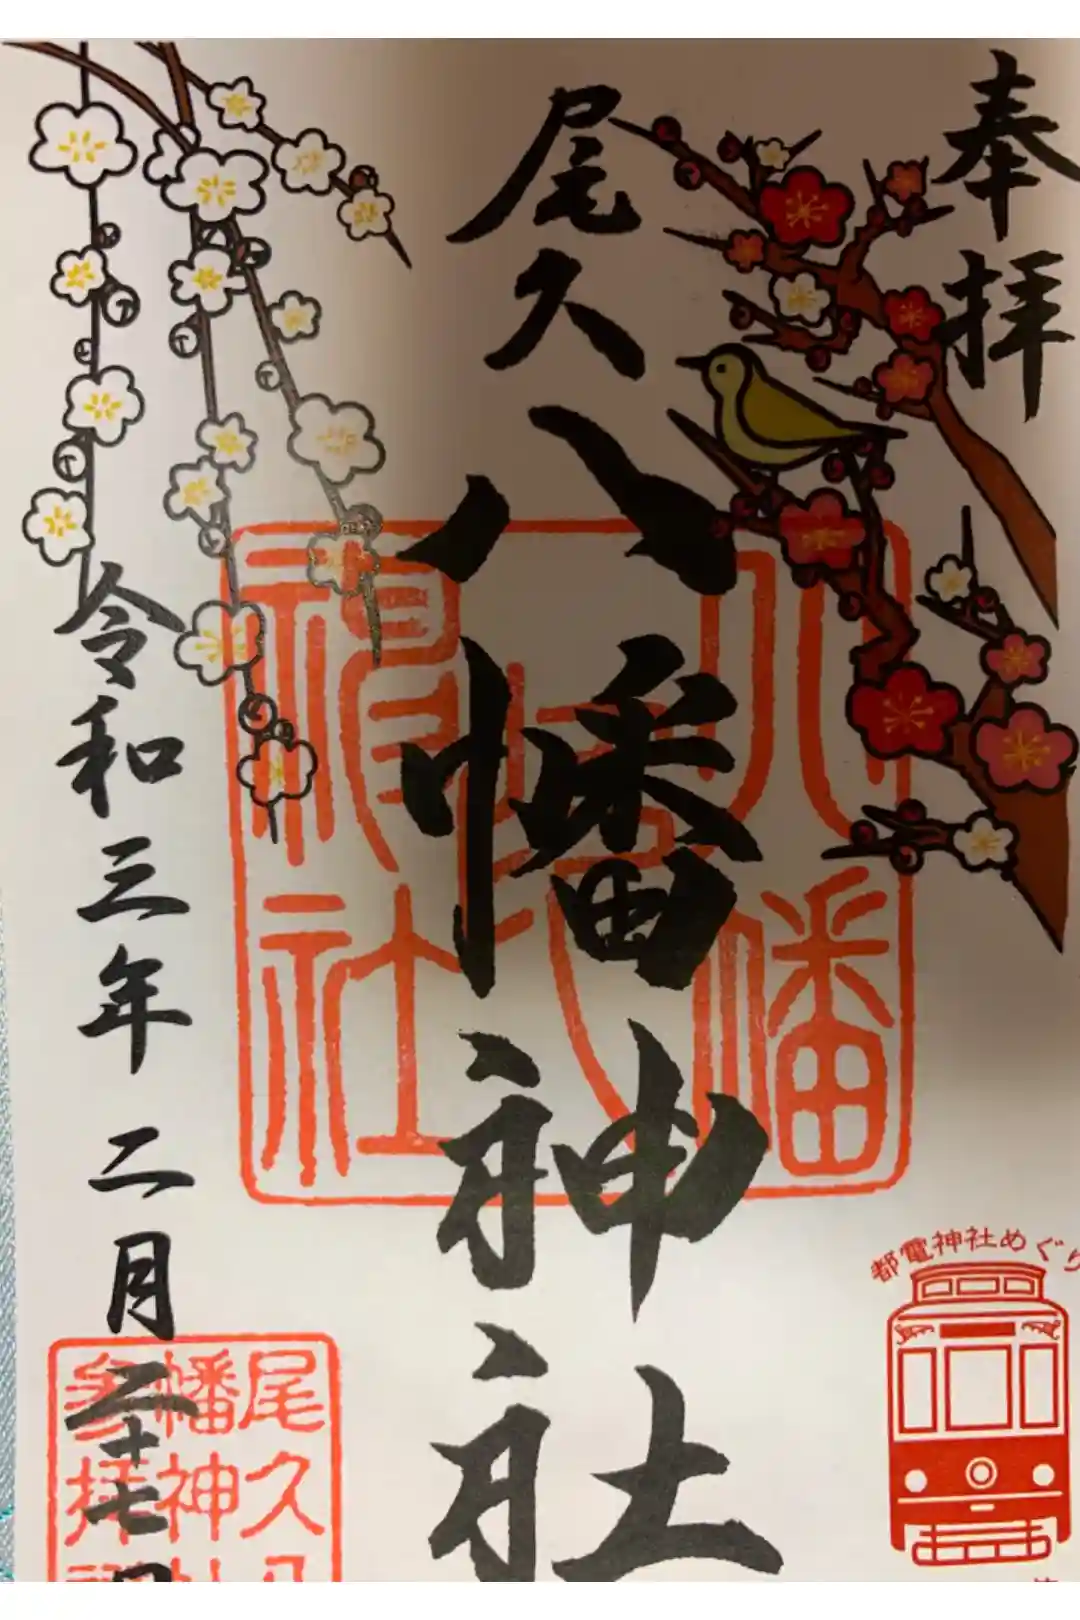 奉拝
尾久
八幡神社
令和三年二月二十七日
八幡
神社
都電神社めぐり
尾久八
幡神社
参拝